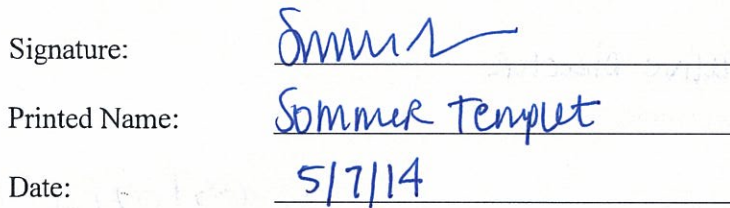 Signature: Sommer
Printed Name: Sommer Templet
Date: 5/7/14